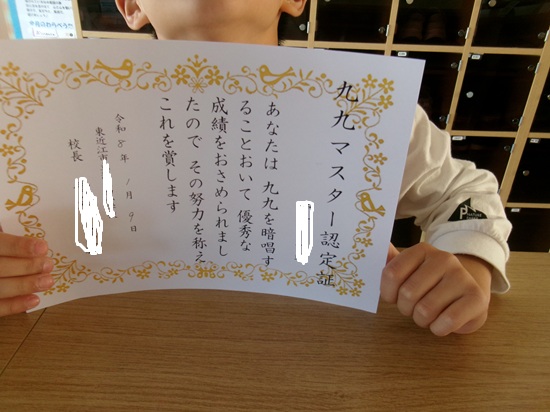 九九マスター認定証
あなたは 九九を暗唱す
ることおいて 優秀な
成績をおさめられまし
たので その努力を称え
これを賞します
令和8年 1月 9日
東近江市
校長